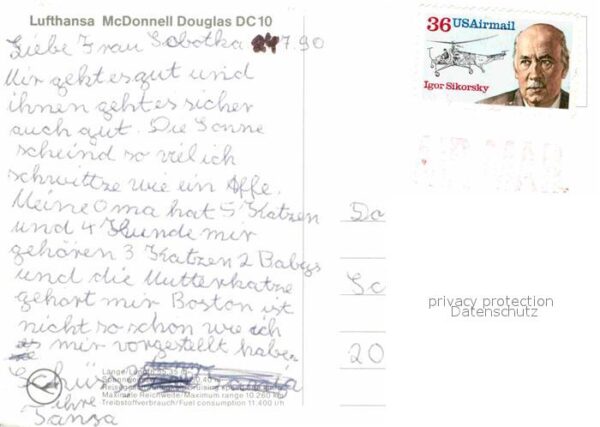 Lufthansa McDonnell Douglas DC 10
Liebe Frau Sobotka 24 7.90
Mir geht es gut und
ihnen geht es sicher
auch gut. Die Sonne
scheind so viel ich
schwittze wie ein Affe.
Meine Oma hat 5 Katzen
und 4 Hunde mir
gehören 3 Katzen 2 Babys
und die Mutterkatze
gehört mir Boston ist
nicht so schon wie ich
es mir vorgestellt habe.
Maximale Reichweite/Maximum range 10.260 km
Treibstoffverbrauch/Fuel consumption 11.400 l/h
Tschüss
ihre
Tanja
36 USAirmail
Igor Sikorsky
AIR MAIL
Da
Sc
20
privacy protection
Datenschutz